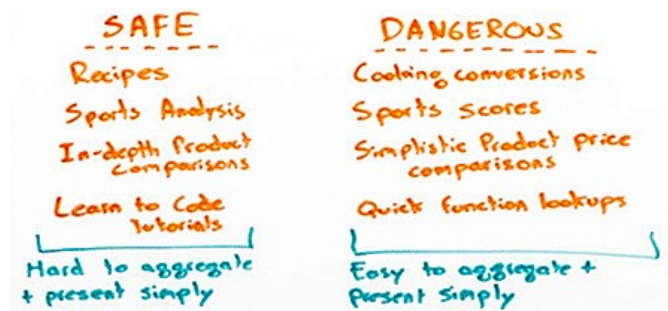 SAFE
Recipes
Sports Analysis
In-depth Product
comparisons
Learn to Code
tutorials
Hard to aggregate
+ present simply
DANGEROUS
Cooking conversions
Sports scores
Simplistic Product price
comparisons
Quick function lookups
Easy to aggregate +
present simply